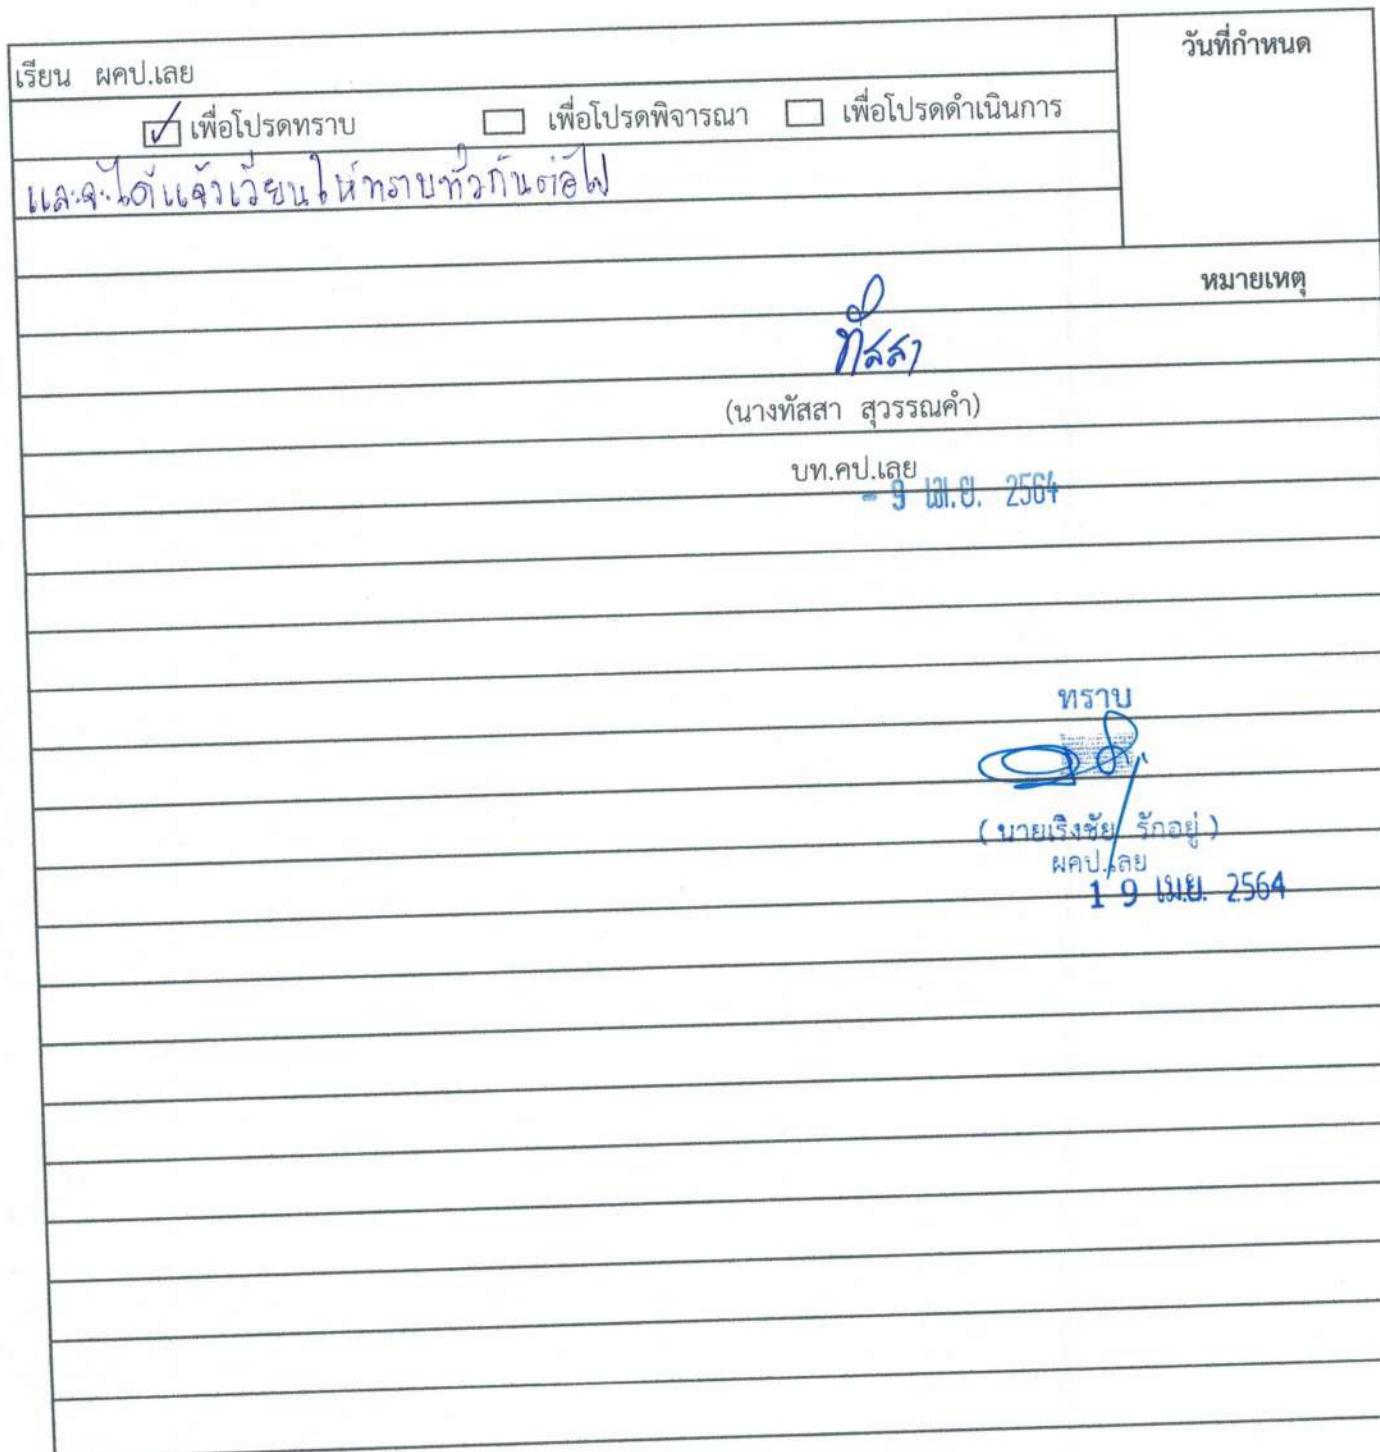 วันที่กำหนด
เรียน ผคป.เลย
☑ เพื่อโปรดทราบ ☐ เพื่อโปรดพิจารณา ☐ เพื่อโปรดดำเนินการ
และจะได้แจ้งเวียนให้ทราบทั่วกันต่อไป
หมายเหตุ
ทัสสา
(นางทัสสา สุวรรณคำ)
บท.คป.เลย
- 9 เม.ย. 2564
ทราบ
( นายเริงชัย รักอยู่ )
ผคป.เลย
19 เม.ย. 2564